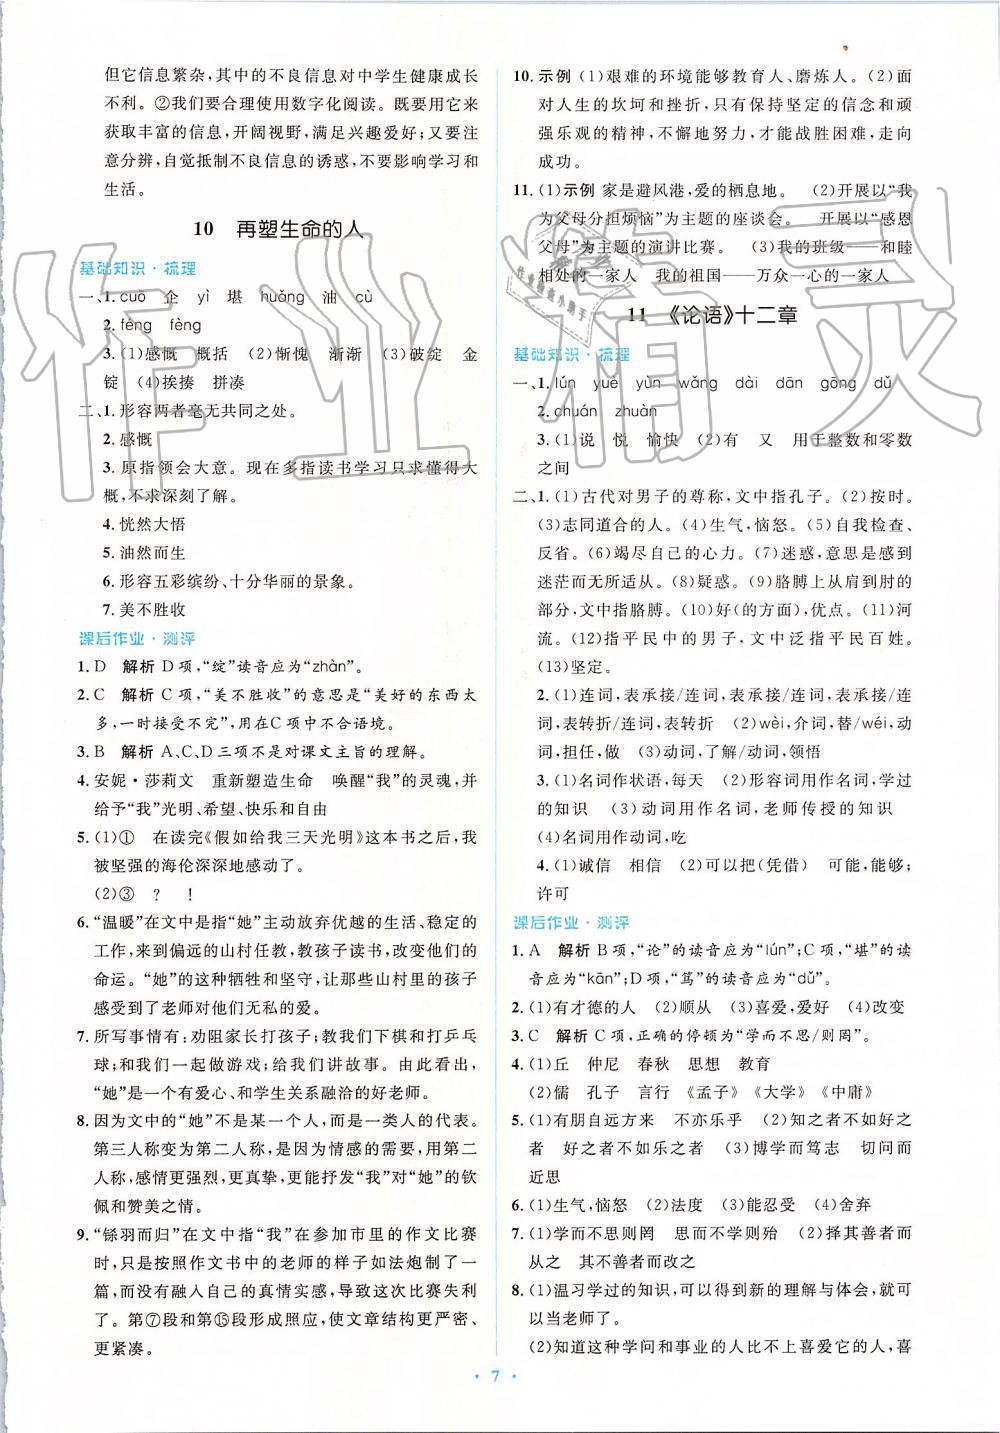 但它信息繁杂,其中的不良信息对中学生健康成长
不利。②我们要合理使用数字化阅读。既要用它来
获取丰富的信息,开阔视野,满足兴趣爱好;又要注
意分辨,自觉抵制不良信息的诱惑,不要影响学习和
生活。
10 再塑生命的人
基础知识·梳理
一、1. cuō 企 yì 堪 huǎng 油 cù
2. féng fèng
3. (1)感慨 概括 (2)惭愧 渐渐 (3)破绽 金
锭 (4)挨揍 拼凑
二、1. 形容两者毫无共同之处。
2. 感慨
3. 原指领会大意。现在多指读书学习只求懂得大
概,不求深刻了解。
4. 恍然大悟
5. 油然而生
6. 形容五彩缤纷、十分华丽的景象。
7. 美不胜收
课后作业·测评
1. D 解析 D项,“绽”读音应为“zhàn”。
2. C 解析 C项,“美不胜收”的意思是“美好的东西太
多,一时接受不完”,用在C项中不合语境。
3. B 解析 A、C、D三项不是对课文主旨的理解。
4. 安妮·莎莉文 重新塑造生命 唤醒“我”的灵魂,并
给予“我”光明、希望、快乐和自由
5. (1)① 在读完《假如给我三天光明》这本书之后,我
被坚强的海伦深深地感动了。
(2)③ ? !
6. “温暖”在文中是指“她”主动放弃优越的生活、稳定的
工作,来到偏远的山村任教,教孩子读书,改变他们的
命运。“她”的这种牺牲和坚守,让那些山村里的孩子
感受到了老师对他们无私的爱。
7. 所写事情有:劝阻家长打孩子;教我们下棋和打乒乓
球;和我们一起做游戏;给我们讲故事。由此看出,
“她”是一个有爱心、和学生关系融洽的好老师。
8. 因为文中的“她”不是某一个人,而是一类人的代表。
第三人称变为第二人称,是因为情感的需要,用第二
人称,感情更强烈,更真挚,更能抒发“我”对“她”的钦
佩和赞美之情。
9. “铩羽而归”在文中指“我”在参加市里的作文比赛
时,只是按照作文书中的老师的样子如法炮制了一
篇,而没有融入自己的真情实感,导致这次比赛失利
了。第⑦段和第⑮段形成照应,使文章结构更严密、
更紧凑。
10. 示例 (1)艰难的环境能够教育人、磨炼人。(2)面
对人生的坎坷和挫折,只有保持坚定的信念和顽
强乐观的精神,不懈地努力,才能战胜困难,走向
成功。
11. (1)示例 家是避风港,爱的栖息地。 (2)开展以“我
为父母分担烦恼”为主题的座谈会。 开展以“感恩
父母”为主题的演讲比赛。 (3)我的班级——和睦
相处的一家人 我的祖国——万众一心的一家人
11 《论语》十二章
基础知识·梳理
一、1. lún yuè yùn wǎng dài dān gōng dǔ
2. chuán zhuàn
3. (1)说 悦 愉快 (2)有 又 用于整数和零数
之间
二、1. (1)古代对男子的尊称,文中指孔子。(2)按时。
(3)志同道合的人。(4)生气,恼怒。(5)自我检查、
反省。(6)竭尽自己的心力。(7)迷惑,意思是感到
迷茫而无所适从。(8)疑惑。(9)胳膊上从肩到肘的
部分,文中指胳膊。(10)好(的方面),优点。(11)河
流。(12)指平民中的男子,文中泛指平民百姓。
(13)坚定。
2. (1)连词,表承接/连词,表承接/连词,表承接/连
词,表转折/连词,表转折 (2)wèi,介词,替/wéi,动
词,担任,做 (3)动词,了解/动词,领悟
3. (1)名词作状语,每天 (2)形容词用作名词,学过
的知识 (3)动词用作名词,老师传授的知识
(4)名词用作动词,吃
4. (1)诚信 相信 (2)可以把(凭借) 可能,能够;
许可
课后作业·测评
1. A 解析 B项,“论”的读音应为“lún”;C项,“堪”的读
音应为“kān”;D项,“笃”的读音应为“dǔ”。
2. (1)有才德的人 (2)顺从 (3)喜爱,爱好 (4)改变
3. C 解析 C项,正确的停顿为“学而不思/则罔”。
4. (1)丘 仲尼 春秋 思想 教育
(2)儒 孔子 言行 《孟子》《大学》《中庸》
5. (1)有朋自远方来 不亦乐乎 (2)知之者不如好之
者 好之者不如乐之者 (3)博学而笃志 切问而
近思
6. (1)生气,恼怒 (2)法度 (3)能忍受 (4)舍弃
7. (1)学而不思则罔 思而不学则殆 (2)择其善者而
从之 其不善者而改之
8. (1)温习学过的知识,可以得到新的理解与体会,就可
以当老师了。
(2)知道这种学问和事业的人比不上喜爱它的人,喜
· 7 ·
作业精灵